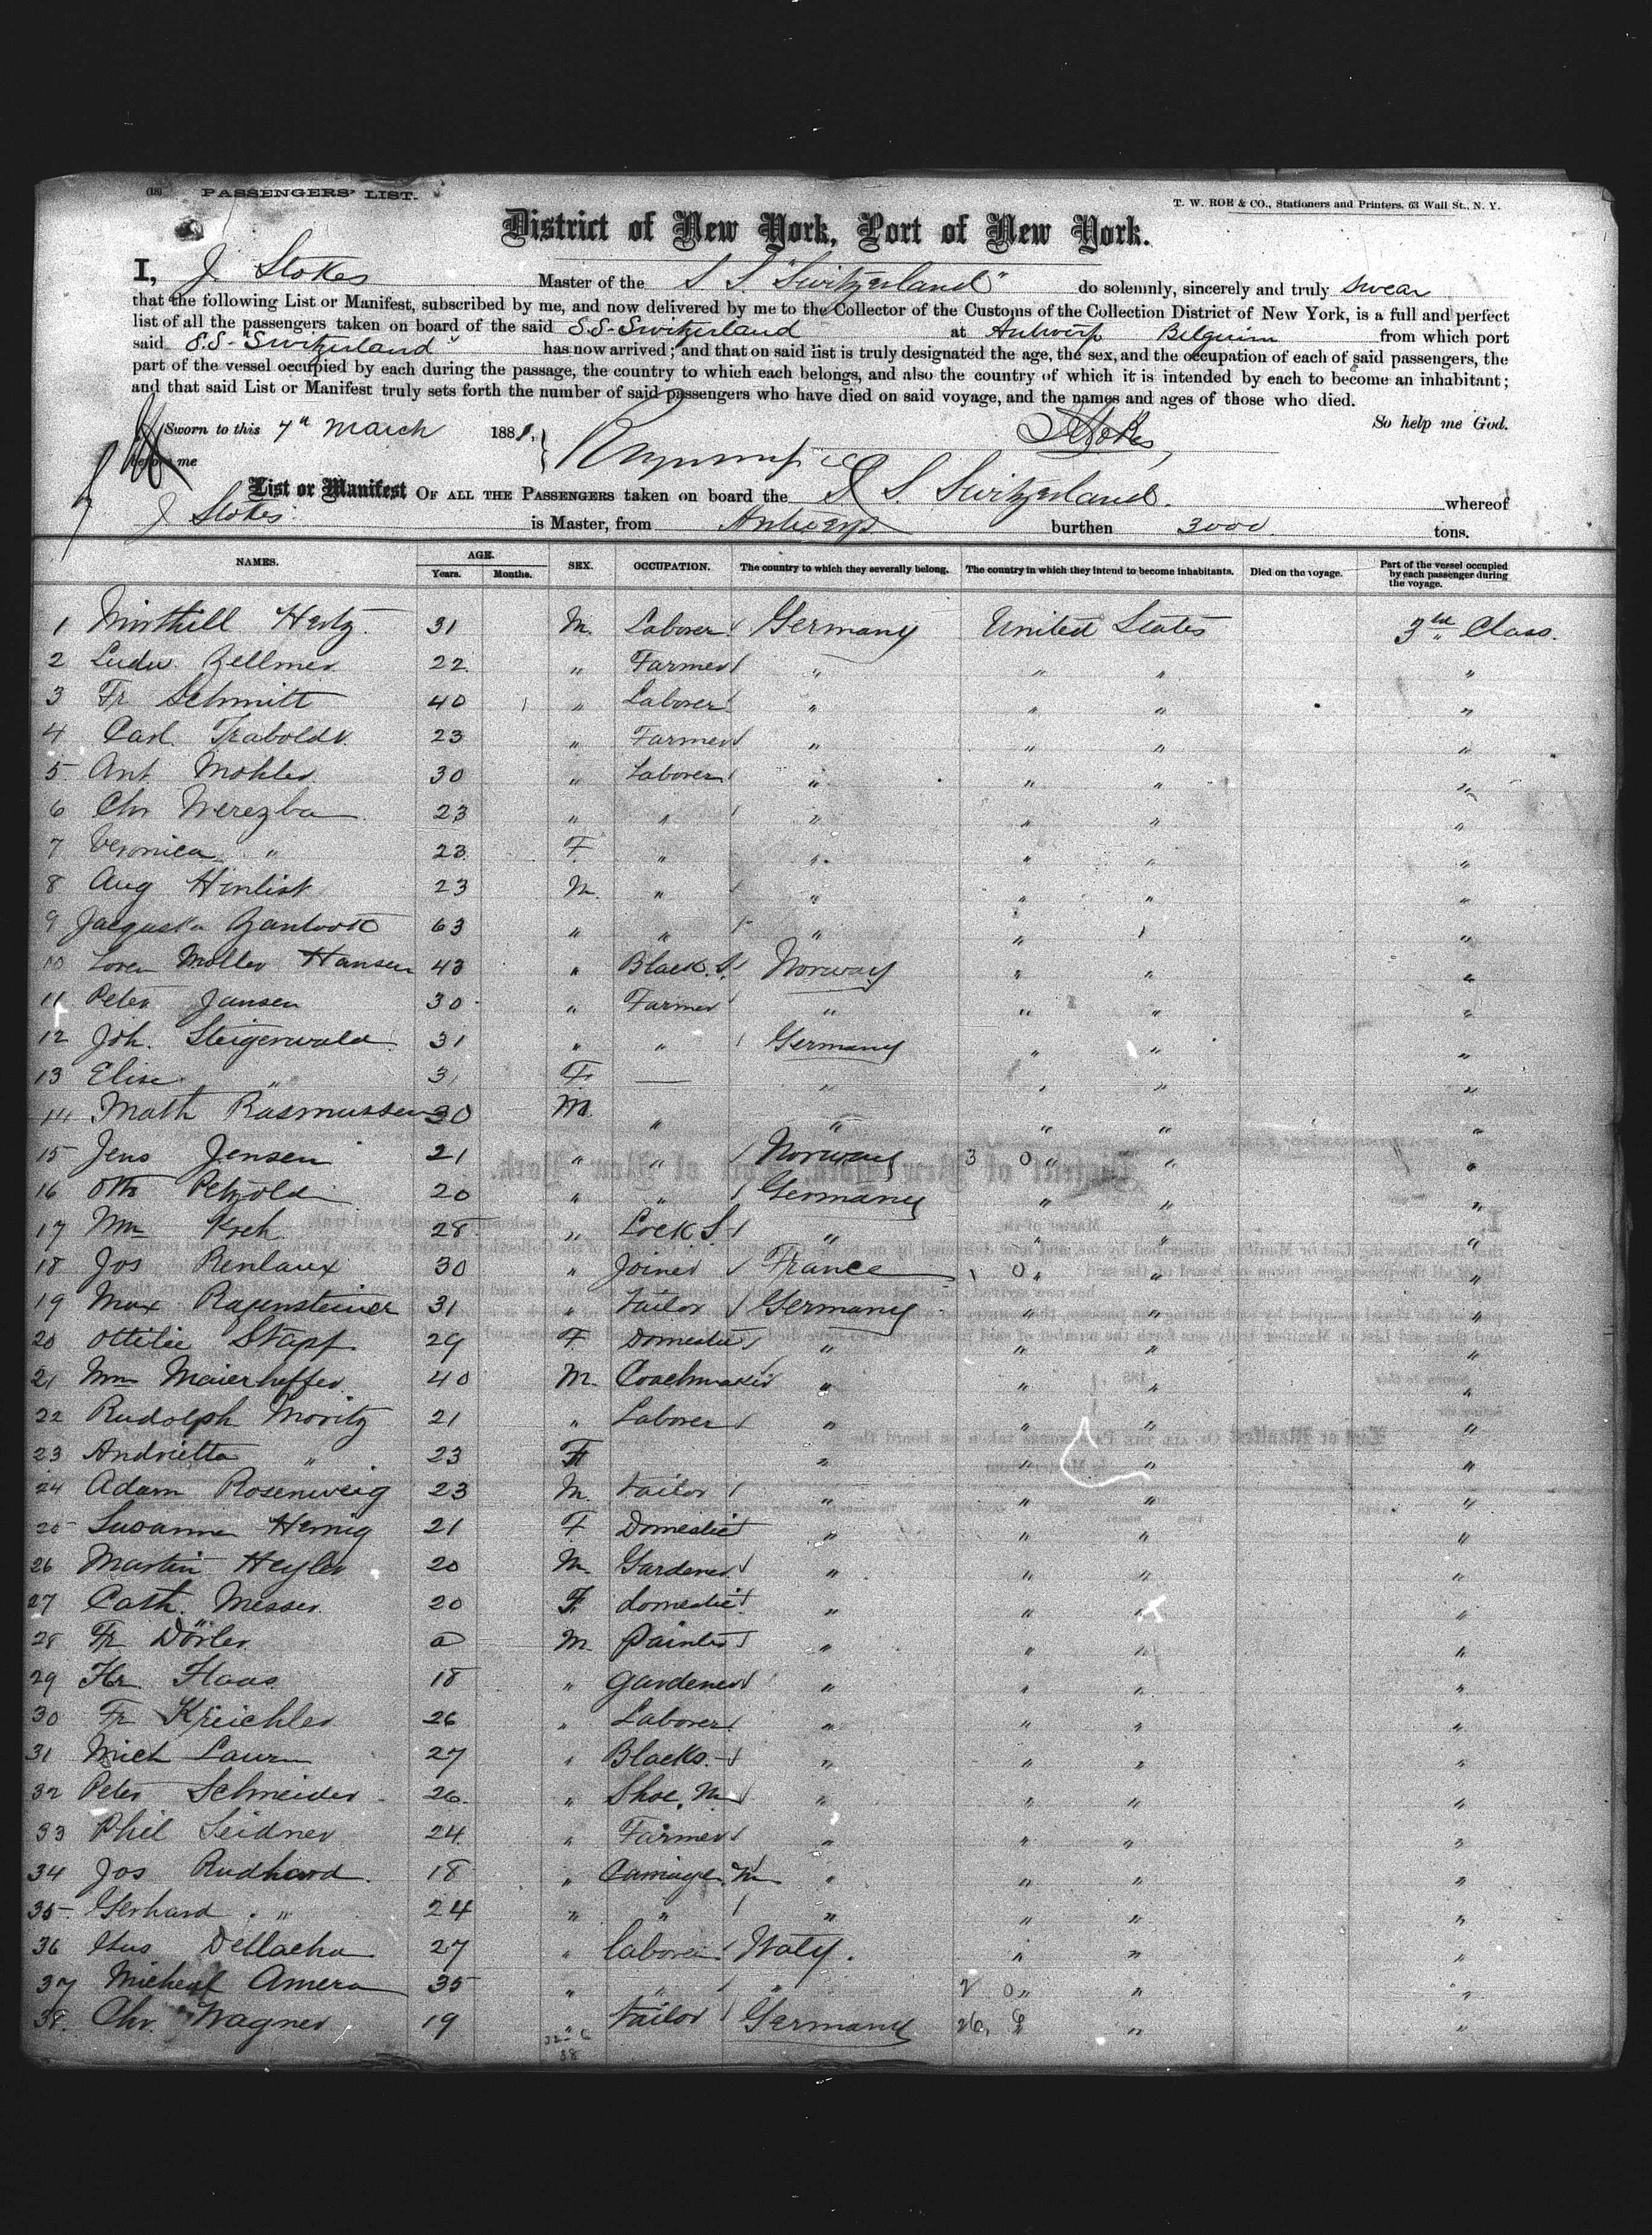 (18) PASSENGERS' LIST.
T. W. ROE & CO., Stationers and Printers, 63 Wall St., N. Y.
District of New York, Port of New York.
I, J Stokes Master of the S S "Switzerland" do solemnly, sincerely and truly swear
that the following List or Manifest, subscribed by me, and now delivered by me to the Collector of the Customs of the Collection District of New York, is a full and perfect
list of all the passengers taken on board of the said S.S-Switzerland at Antwerp Belguim from which port
said S.S-"Switzerland" has now arrived; and that on said list is truly designated the age, the sex, and the occupation of each of said passengers, the
part of the vessel occupied by each during the passage, the country to which each belongs, and also the country of which it is intended by each to become an inhabitant;
and that said List or Manifest truly sets forth the number of said passengers who have died on said voyage, and the names and ages of those who died.
Sworn to this 7th March 1881, So help me God.
before me JStokes
List or Manifest OF ALL THE PASSENGERS taken on board the S. S. Switzerland. whereof
J Stokes is Master, from Antwerp burthen 3000 tons.
NAMES. AGE. Years. Months. SEX. OCCUPATION. The country to which they severally belong. The country in which they intend to become inhabitants. Died on the voyage. Part of the vessel occupied by each passenger during the voyage.
1 Hertz 31 M. Laborer Germany United States 3rd Class.
2 Ludw. Zellmer 22 " Farmer " " " "
3 Fr Schmitt 40 " Laborer " " " "
4 Carl 23 " Farmer " " " "
5 Ant Mohler 30 " Laborer " " " "
6 Chr Werezba 23 " " " " " "
7 Veronica " 23 F. " " " " "
8 Aug 23 M. " " " " "
9 63 " " " " "
10 Loren Moller Hansen 43 " Black.S. Norway " " "
11 Peter Jansen 30 " Farmer " " " "
12 Joh. Steigerwald 31 " " Germany " " "
13 Elise " 31 F. — " " " "
14 Math Rasmussen 30 M. " " " " "
15 Jens Jensen 21 " " Norway 3 0 " " "
16 Otto Petzold 20 " " Germany " " "
17 Wm Kreh 28 " Lock S. " " " "
18 Jos Renlaux 30 " Joiner France 1 0 " " "
19 Max Ragensteiner 31 " Tailor Germany " " "
20 Ottilie Stapf 29 F Domestic " " " "
21 Wm Maierheffer 40 M. Coachmaker " " " "
22 Rudolph Moritz 21 " Laborer " " " "
23 Andrietta " 23 F " " " "
24 Adam Rosenweig 23 M. tailor " " " "
25 Susanna Hernig 21 F Domestic " " " "
26 Martin Heyler 20 M. Gardener " " " "
27 Cath. Messer 20 F. domestic " " " "
28 Fr Dörler M Painter " " " "
29 Hr. Haas 18 " gardener " " " "
30 Fr Kreichler 26 " Laborer " " " "
31 Mich Laurn 27 " Blacks. " " " "
32 Peter Schneider 26 " Shoe. M " " " "
33 Phil Seidner 24 " Farmer " " " "
34 Jos Rudhard 18 " Carriage. M " " " "
35 Gerhard " 24 " " " " " "
36 Dellacha 27 " laborer Italy. " " "
37 Micheal Amera 35 " " " 2 0 " " "
38. Chr. Wagner 19 " tailor Germany 26, " "
38